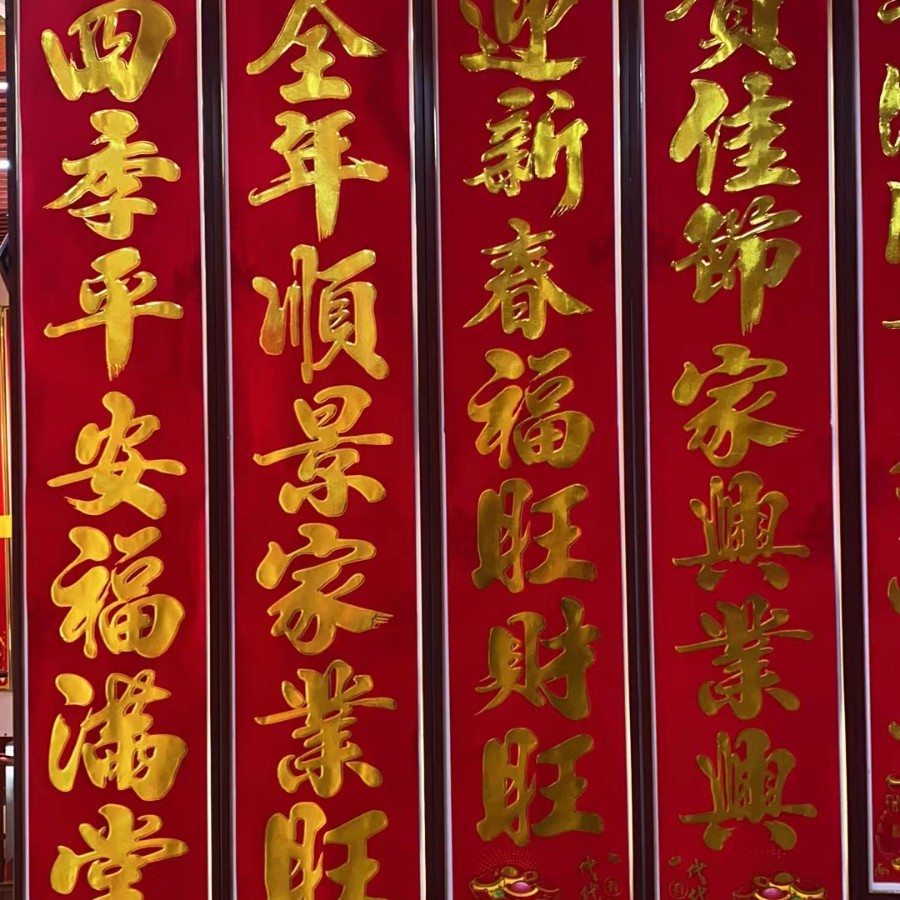 四季平安福滿堂
全年順景家業旺
迎新春福旺財旺
賀佳節家興業興